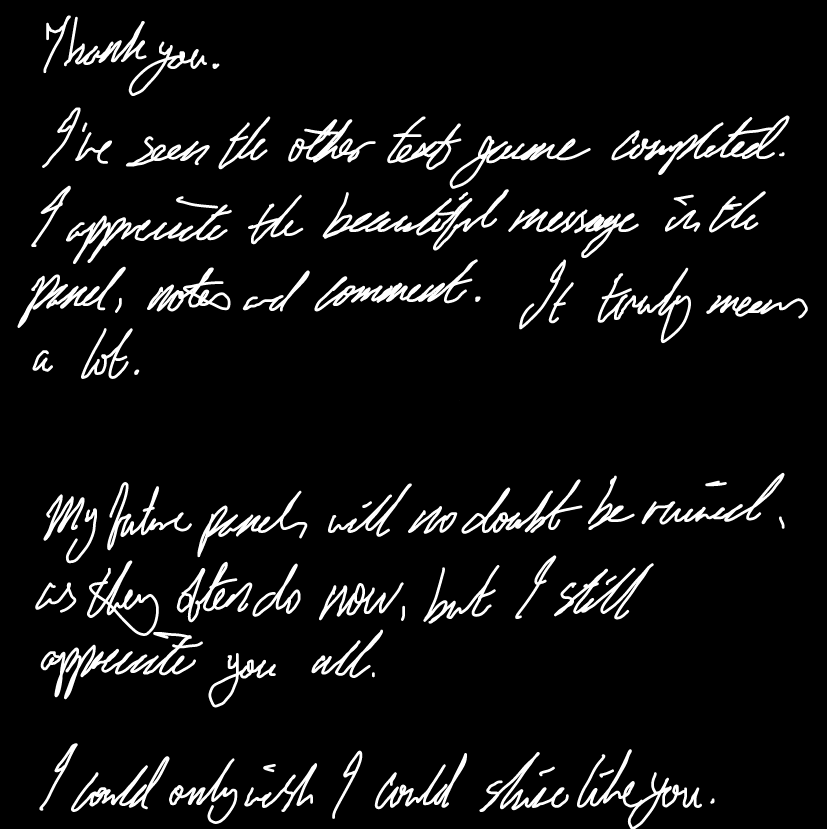 Thank you.
I've seen the other text game completed.
I appreciate the beautiful message in the
panel, notes and comment. It truly means
a lot.
My future panels will no doubt be ruined,
as they often do now, but I still
appreciate you all.
I could only wish I could shine like you.